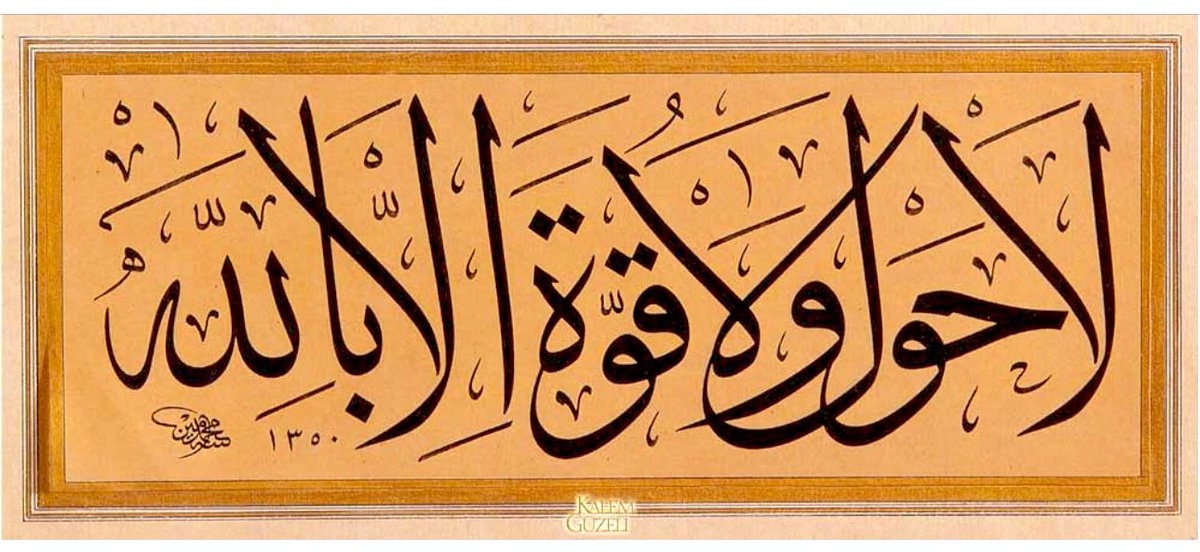 لا حول ولا قوة الا بالله
١٣٥٠
KALEM
GUZELI